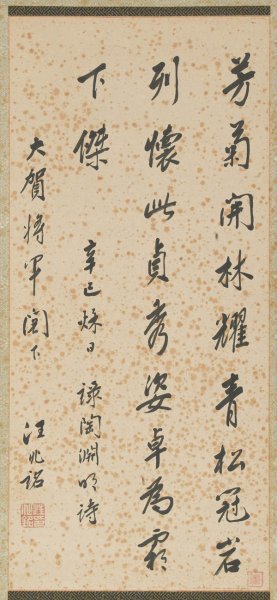 芳菊開林耀青松冠岩
列懷此貞秀姿卓為霜
下傑
辛巳秋日 錄陶淵明詩
大賀將軍閣下
汪兆銘